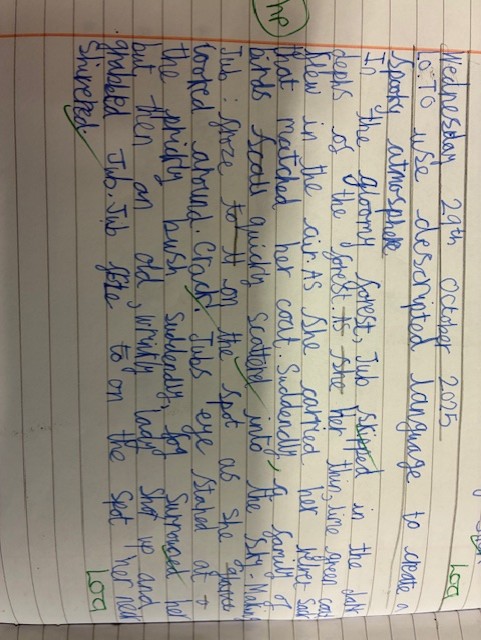 hp
Wednesday 29th October 2025
LO: TO use descripted language to create a
spooky atmosphere
LOa
In the gloomy forest, Jub skipped in the dark
depths of the forest. As she her thin, lime green coat
flew in the air. As she carried her velvet
that matched her coat. Suddendly, a family of
birds quickly scatterd into the sky. Making
Jub froze to on the spot as she
looked around. Crack! Jubs eye stared at
the prickly bush suddenly, fog surround her
but then an old, wrinkly lady shot up and
grabbed Jub. Jub to on the spot her
shuncked
LOa